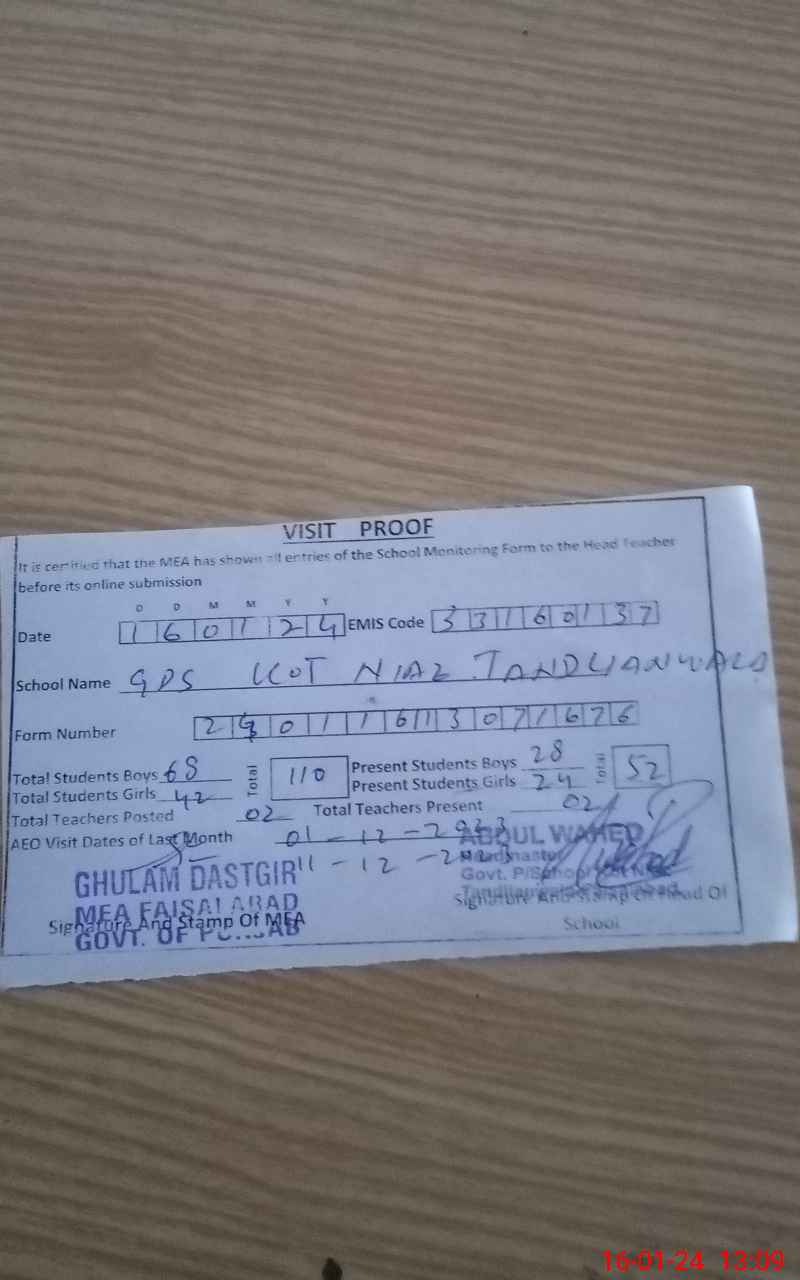 VISIT PROOF
It is certified that the MEA has shown all entries of the School Monitoring Form to the Head Teacher
before its online submission
D D M M Y Y
Date 160124 EMIS Code 33160137
School Name GPS KOT NIAZ TANDLIANWALA
Form Number 24011613071676
Total Students Boys 68 Total 110 Present Students Boys 28 Total 52
Total Students Girls 42 Present Students Girls 24
Total Teachers Posted 02 Total Teachers Present 02
AEO Visit Dates of Last Month 01-12-2023
11-12-2023
GHULAM DASTGIR
MEA FAISALABAD
GOVT. OF PUNJAB
Signature And Stamp Of MEA
ABDUL WAHED
Headmaster
Govt. P/School
Signature And Stamp Of Head Of
School
16-01-24 13:09